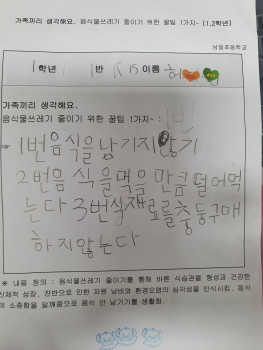 가족끼리 생각해요. 음식물쓰레기 줄이기 위한 꿀팁 1가지~ : [1,2학년]
남일초등학교
1학년 1반 15 이름 허
가족끼리 생각해요.
음식물쓰레기 줄이기 위한 꿀팁 1가지~ : 1번
1번음식을남기지않기
2번음식을먹을만큼덜어먹
는다3번식재료를충동구매
하지않는다
※ 내용 정의 : 음식물쓰레기 줄이기를 통해 바른 식습관을 형성과 건강한
신체적 성장, 잔반으로 인한 자원 낭비와 환경오염의 심각성을 인식시킴, 음식
의 소중함을 일깨움으로 음식 안 남기기를 생활화.